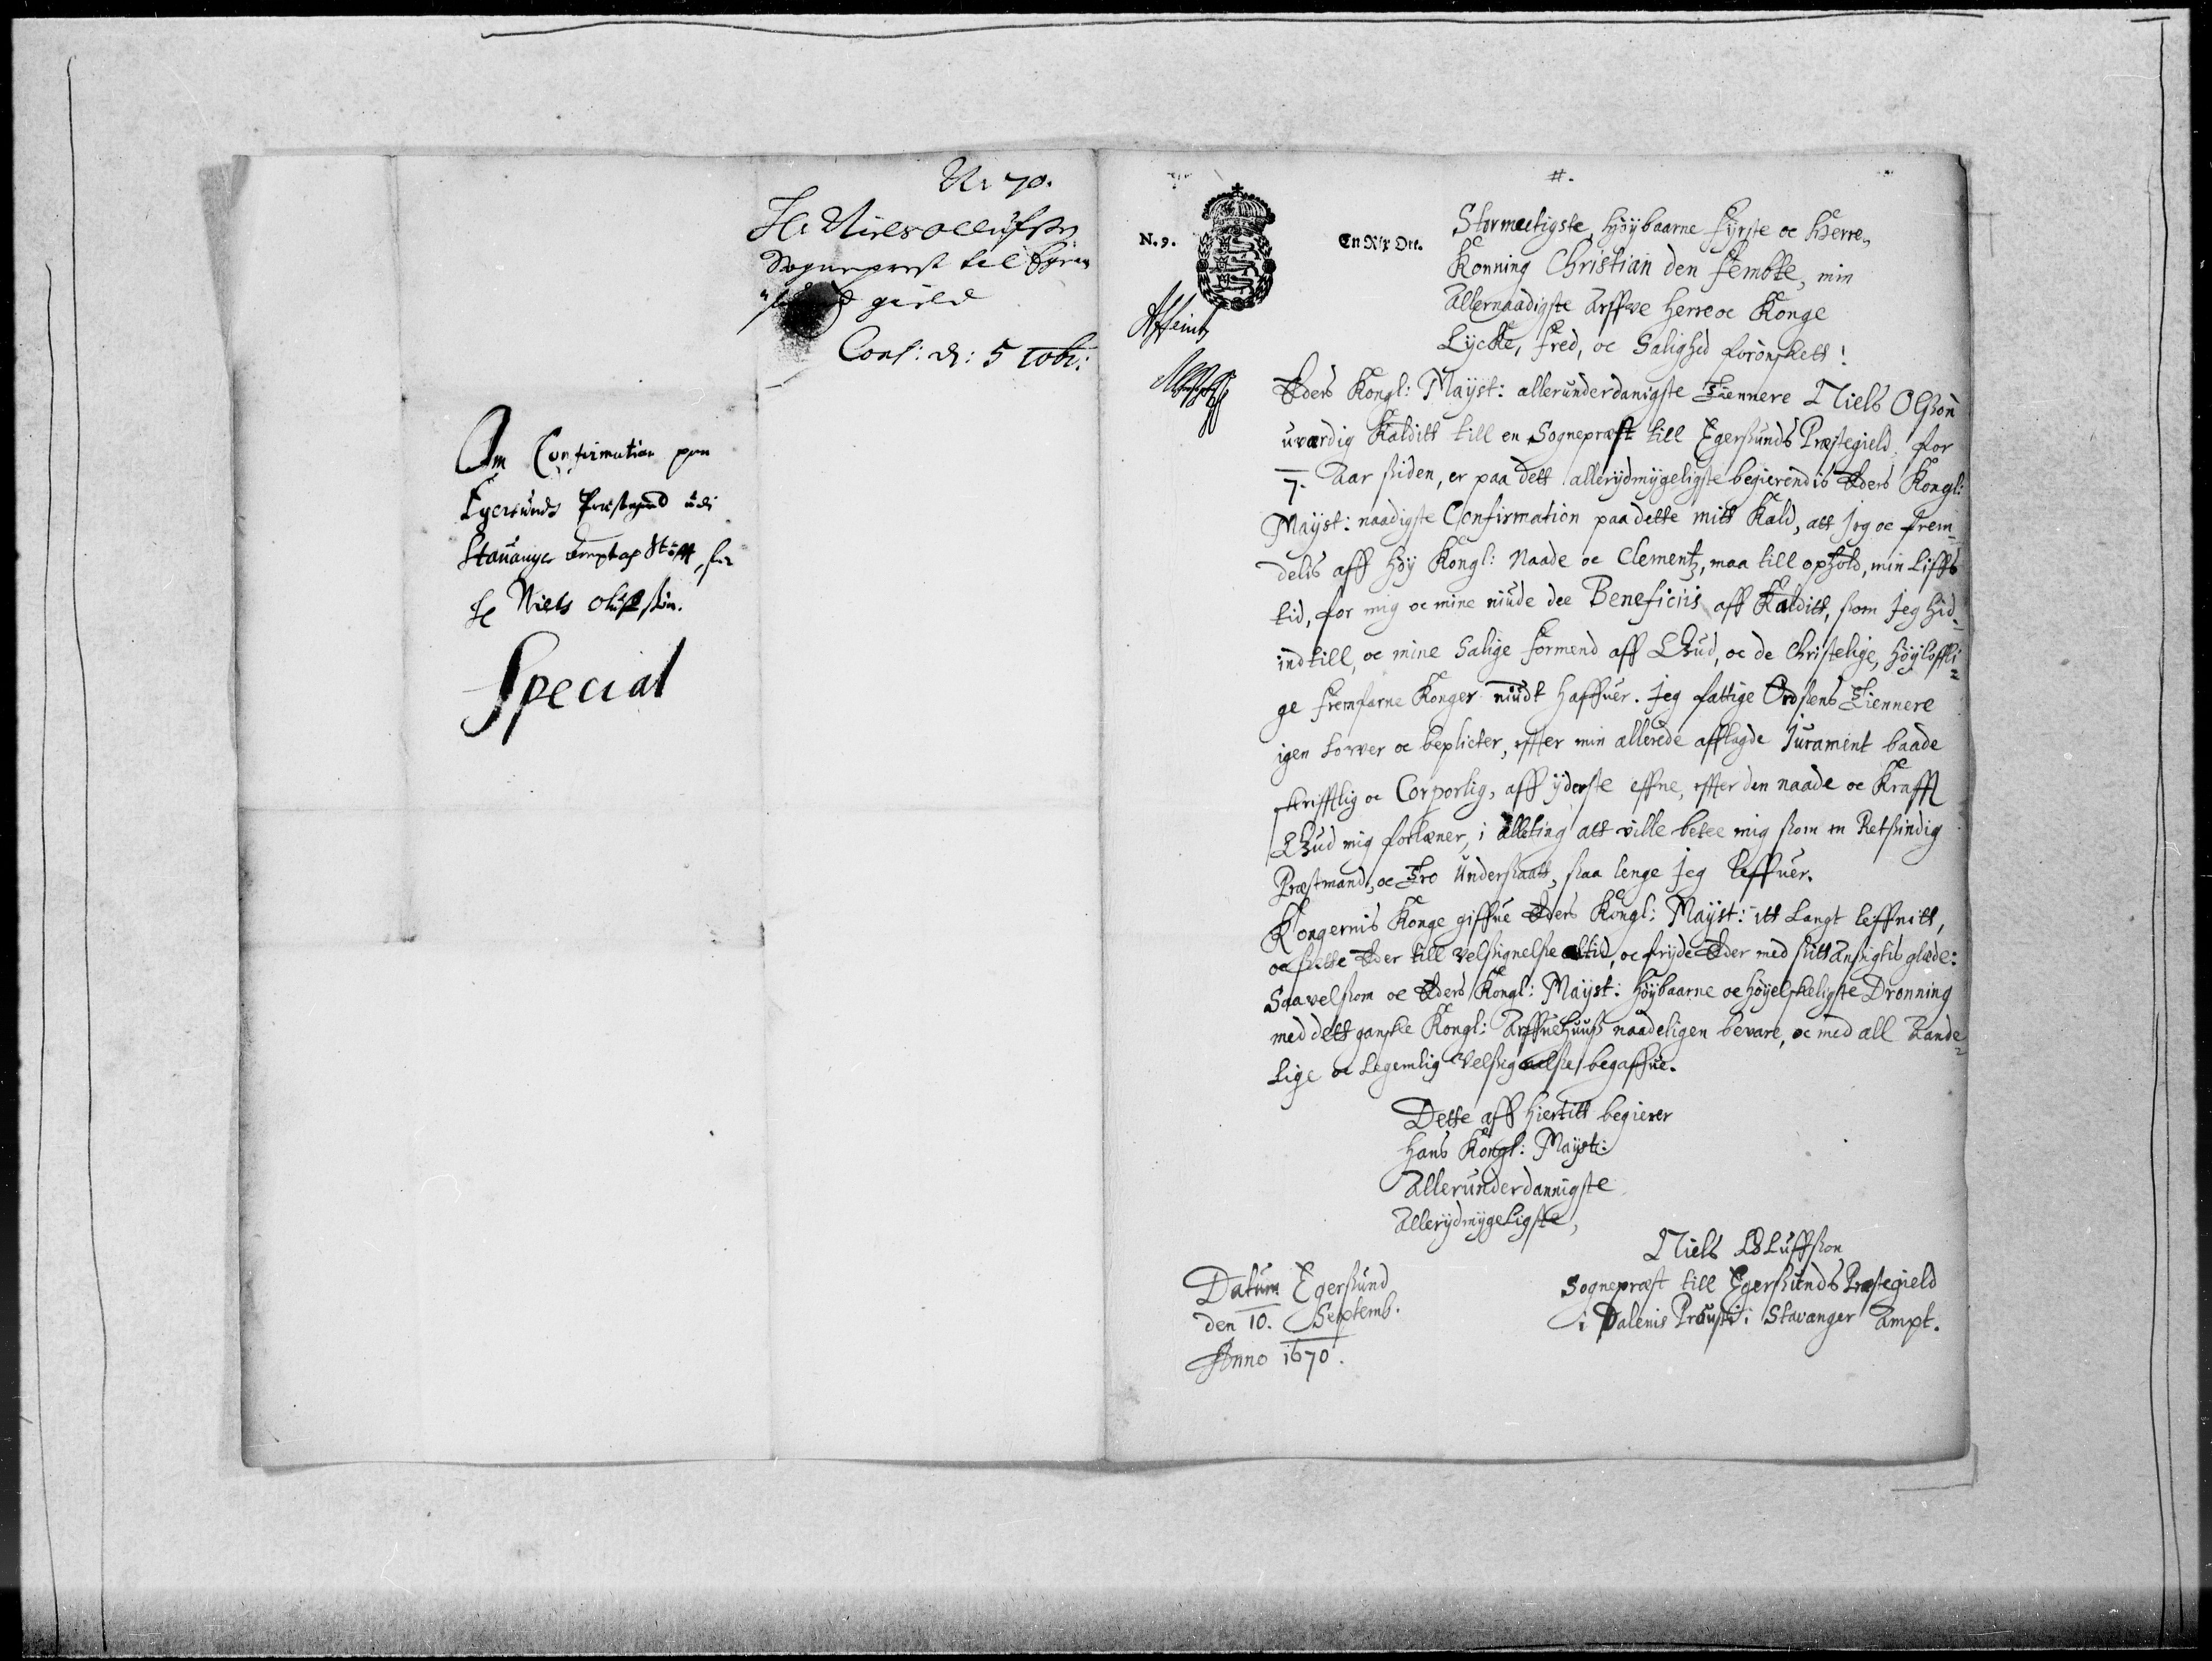 No 70.
Hr Niels Ollufsøn
Sogneprest til Egers
gield
Conf: d: 5 10br:
Om Confirmation paa
Egersunds Prestegield udi
Stauanger Ampt
Hr Niels Olufsøn.
Special
#.
N. 9.
En Rix Ort.
Stormectigste, Høÿbaarne Fÿrste oc Herre,
Konning Christian den Fembte, min
Allernaadigste Arffve Herre oc Konge
Lÿcke, Fred, oc Salighed forønskett!
Eders Kongl: Maÿst: allerunderdanigste Tiennere Niels Olßøn
uværdig Kalditt till en Sognepræst till Egerßunds Præstegield, for
7. Aar ßiden, er paa dett allerÿdmÿgeligste begierendis Eders Kongl:
Maÿst: naadigste Confirmation paa dette mitt Kald, att Jeg oc frem¬
delis aff Høÿ Kongl: Naade oc Clementz, maa till ophold, min Liffs
tid, for mig oc mine niude dee Beneficiis aff Kalditt, ßom Jeg hid¬
indtill, oc mine Salige Formend aff Gud, oc de Christelige, Høÿloffli¬
ge fremfarne Konger niudt haffuer. Jeg fattige Ordßens Tiennere
igen Lover oc beplicter, effter min allerede afflagde Jurament baade
skrifftlig oc Corporlig, aff ÿderste effne, effter den naade oc Krafft
Gud mig forlæner, i alleting att ville betee mig ßom en Retßindig
Præstmand, oc Tro Underßaatt, ßaa lenge Jeg leffuer.
Kongernis Konge giffue Eders Kongl: Maÿst: itt Langt leffnitt,
oc ßette Eder till Velßignelße altid, oc frÿde Eder med ßitt Anßigtis glæde:
Saavelßom oc Eders Kongl: Maÿst: Høÿbaarne oc Høÿelskeligste Dronning
med dett ganske Kongl: Arffuehuuß naadeligen bevare, oc med all Aande¬
Lige oc Legemlig Velßignelße begaffue.
Dette aff Hiertitt begierer
Hans Kongl: Maÿst:
Allerunderdannigste
Allerÿdmÿgeligste,
Niels Oluffßøn
Sognepræst till Egerßunds Præstegield
i Dalenis Prousti i Stavanger Ampt.
Datum Egerßund
den 10. Septemb.
Anno 1670.